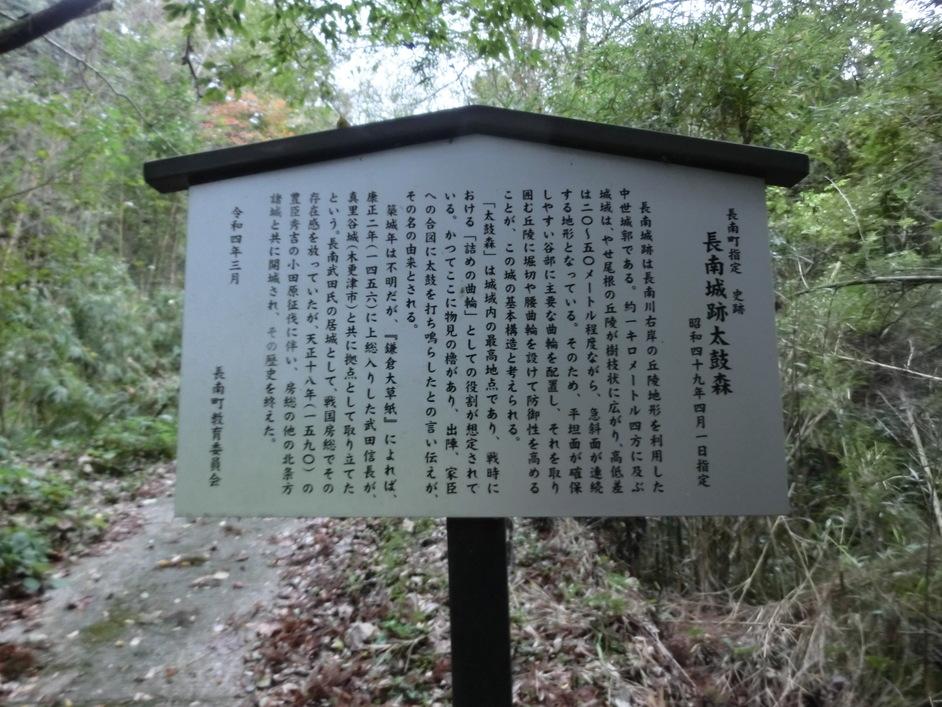 長南町指定　史跡
長南城跡太鼓森
昭和四十九年四月一日指定
長南城跡は長南川右岸の丘陵地形を利用した
中世城郭である。約一キロメートル四方に及ぶ
城域は、やせ尾根の丘陵が樹枝状に広がり、高低差
は二〇～五〇メートル程度ながら、急斜面が連続
する地形となっている。そのため、平坦面が確保
しやすい谷部に主要な曲輪を配置し、それを取り
囲む丘陵に堀切や腰曲輪を設けて防御性を高める
ことが、この城の基本構造と考えられる。
「太鼓森」は城域内の最高地点であり、戦時に
おける「詰めの曲輪」としての役割が想定されて
いる。かつてここに物見の櫓があり、出陣、家臣
への合図に太鼓を打ち鳴らしたとの言い伝えが、
その名の由来とされる。
築城年は不明だが、『鎌倉大草紙』によれば、
康正二年（一四五六）に上総入りした武田信長が、
真里谷城（木更津市）と共に拠点として取り立てた
という。長南武田氏の居城として、戦国房総でその
存在感を放っていたが、天正十八年（一五九〇）の
豊臣秀吉の小田原征伐に伴い、房総の他の北条方
諸城と共に開城され、その歴史を終えた。
令和四年三月
長南町教育委員会